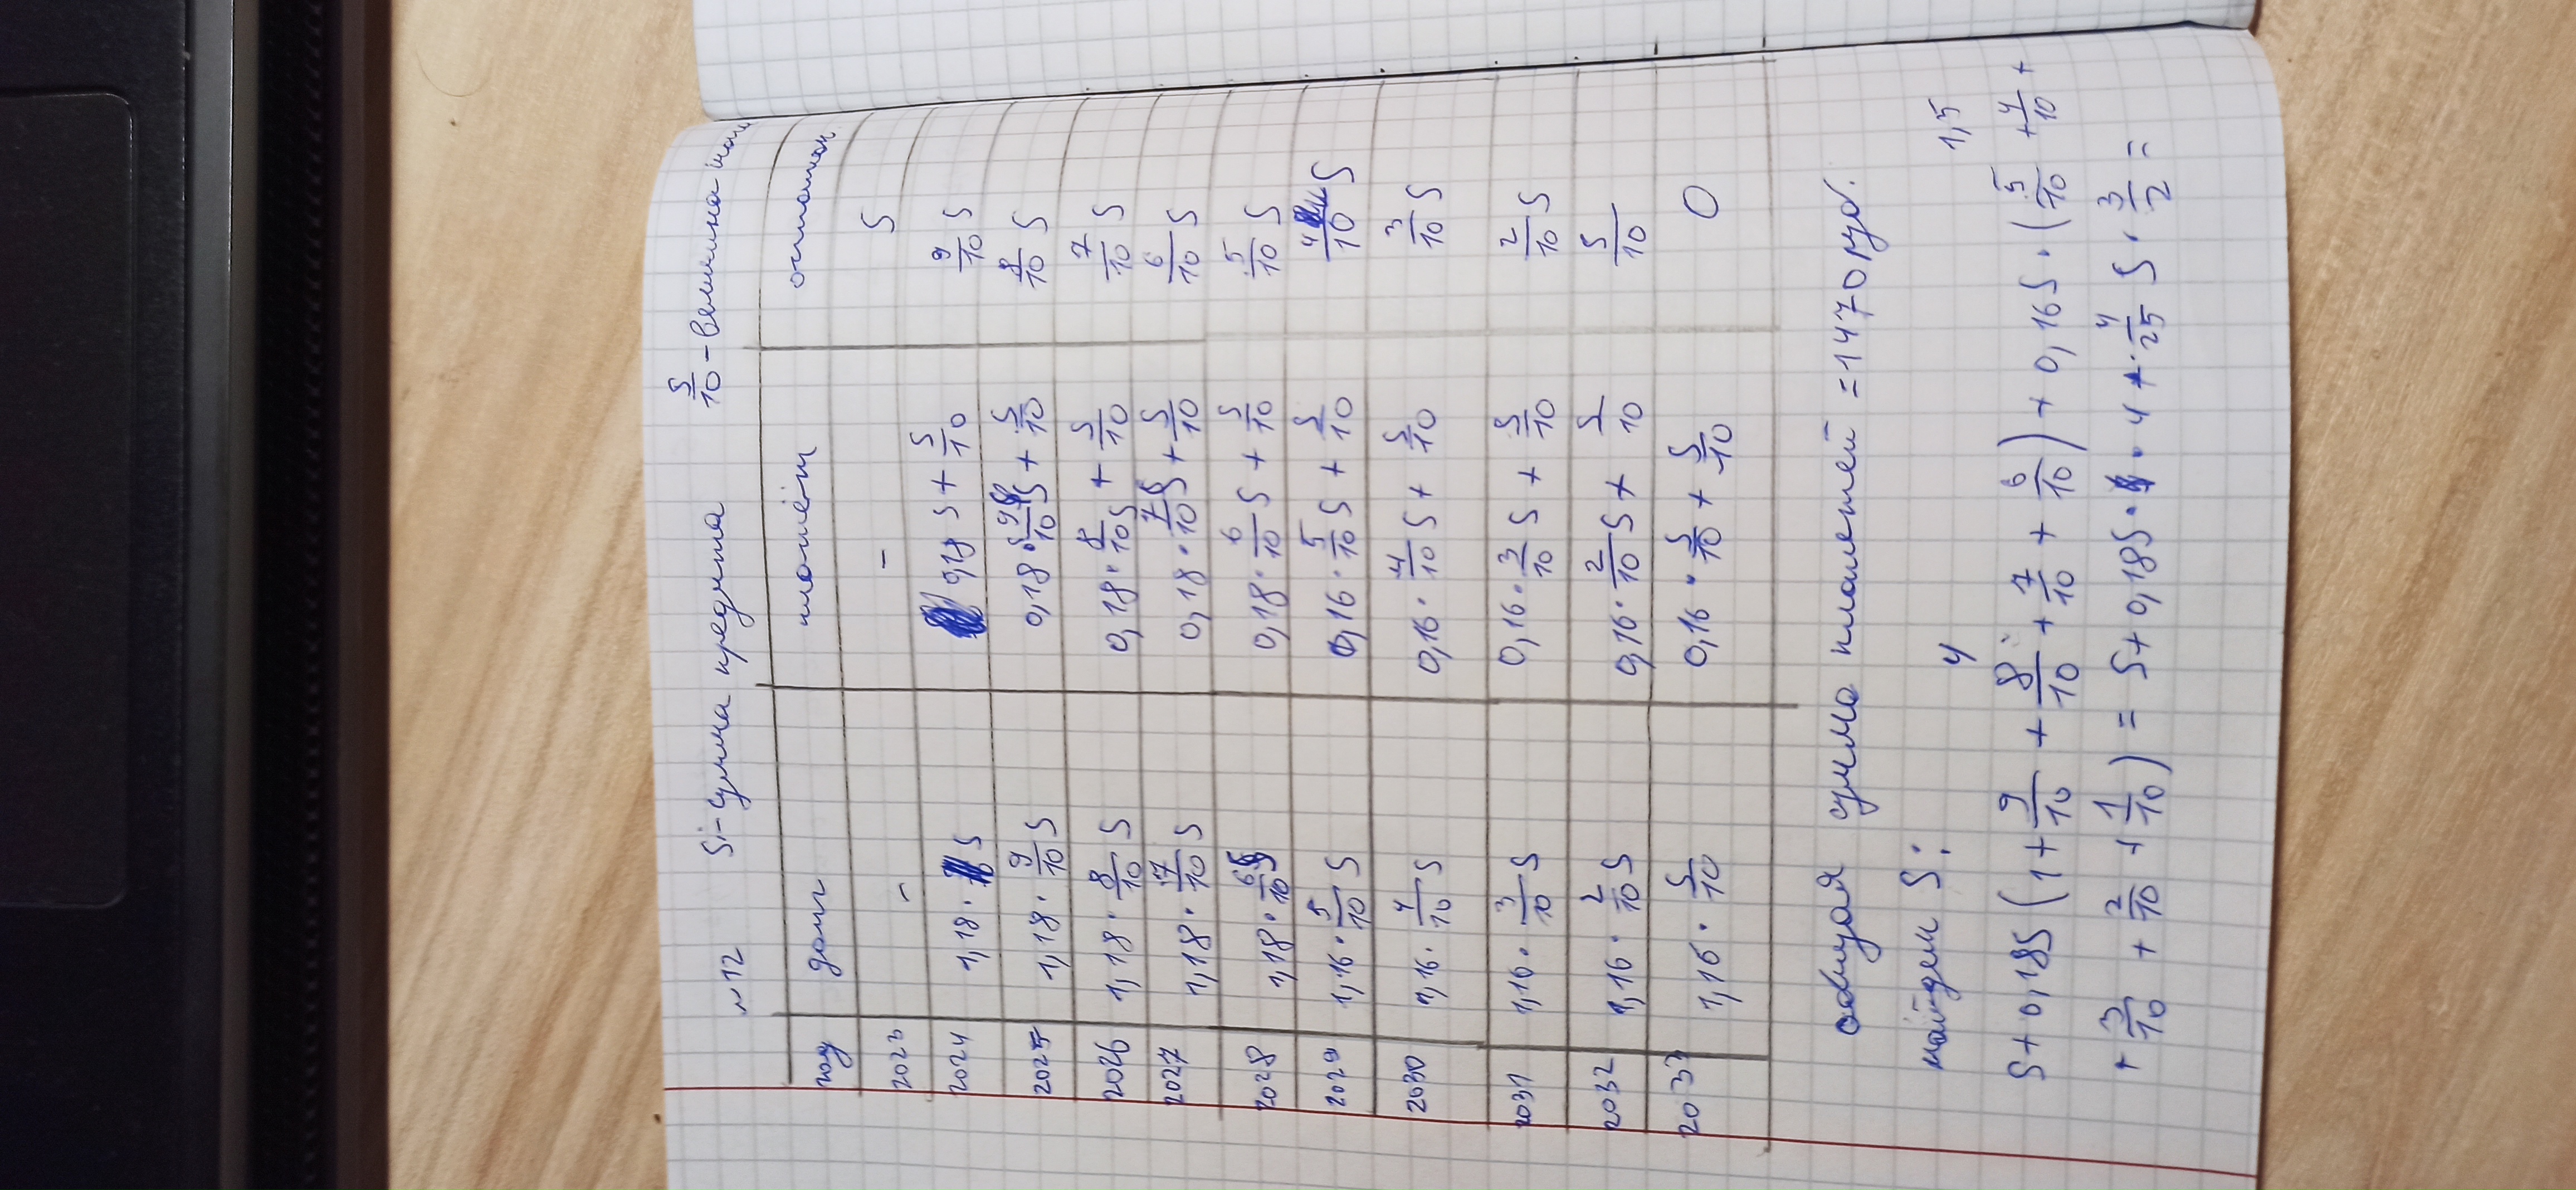 №12 S - сумма кредита S/10 - величина
год долг платёж остаток
2023 - - S
2024 1,18 · S 0,18 S + S/10 9/10 S
2025 1,18 · 9/10 S 0,18 · 9/10 S + S/10 8/10 S
2026 1,18 · 8/10 S 0,18 · 8/10 S + S/10 7/10 S
2027 1,18 · 7/10 S 0,18 · 7/10 S + S/10 6/10 S
2028 1,18 · 6/10 S 0,18 · 6/10 S + S/10 5/10 S
2029 1,16 · 5/10 S 0,16 · 5/10 S + S/10 4/10 S
2030 1,16 · 4/10 S 0,16 · 4/10 S + S/10 3/10 S
2031 1,16 · 3/10 S 0,16 · 3/10 S + S/10 2/10 S
2032 1,16 · 2/10 S 0,16 · 2/10 S + S/10 S/10
2033 1,16 · S/10 0,16 · S/10 + S/10 0
общая сумма платежей = 1470 руб.
найдем S:
4 1,5
S + 0,18S (1 + 9/10 + 8/10 + 7/10 + 6/10) + 0,16S · (5/10 + 4/10 +
+ 3/10 + 2/10 + 1/10) = S + 0,18S · 4 + 4/25 S · 3/2 =